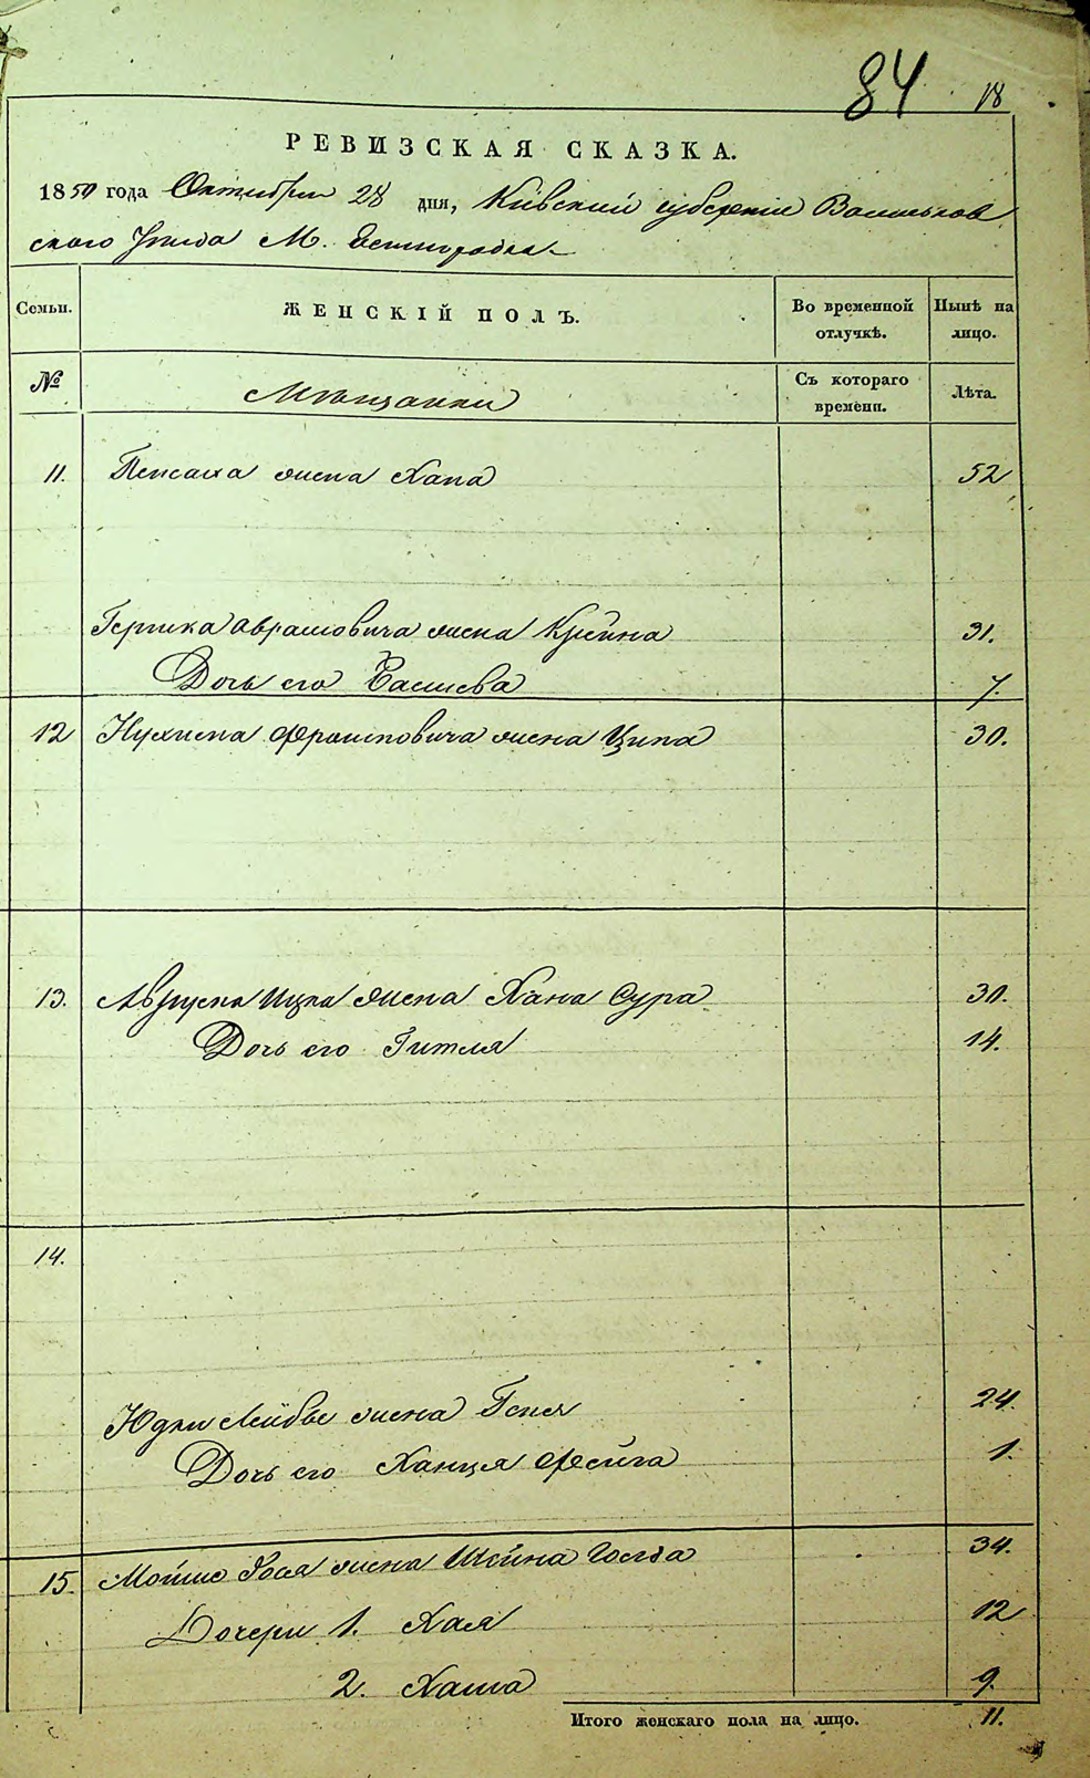 84 18
РЕВИЗСКАЯ СКАЗКА.
1850 года Октября 28 дня, Кіевской губерніи Васильков
ского Уѣзда М. Ясногородка
Семьи. ЖЕНСКІЙ ПОЛЪ. Во временной отлучкѣ. Нынѣ на лицо.
№ Мѣщанки Съ котораго времени. Лѣта.
11. Пейсаха жена Хана 52
Гершка Аврамовича жена Крейна 31.
Дочь его Басшева 7.
12 Нухима Фроимовича жена Ципа 30.
13. Ицка жена Хана Сура 30.
Дочь его Гитля 14.
14.
Юдки Лейбы жена Геня 24.
Дочь его Ханця Фейга 1.
15. Мошко жена Шейна Голда 34.
Дочери 1. Хая 12
2. Хаша 9.
Итого женскаго пола на лицо. 11.